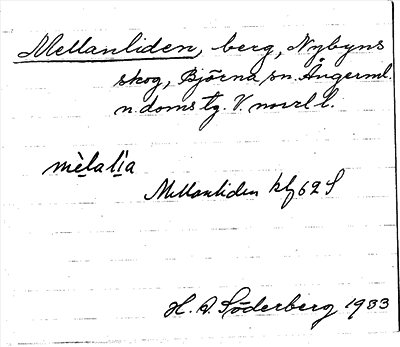 Mellanliden, berg, Nybyns
skog, Björna sn. Ångerml.
n. doms tg. V. norrl l.
mèlalìa
Mellanliden kbl 62 S
H. A. Söderberg 1933